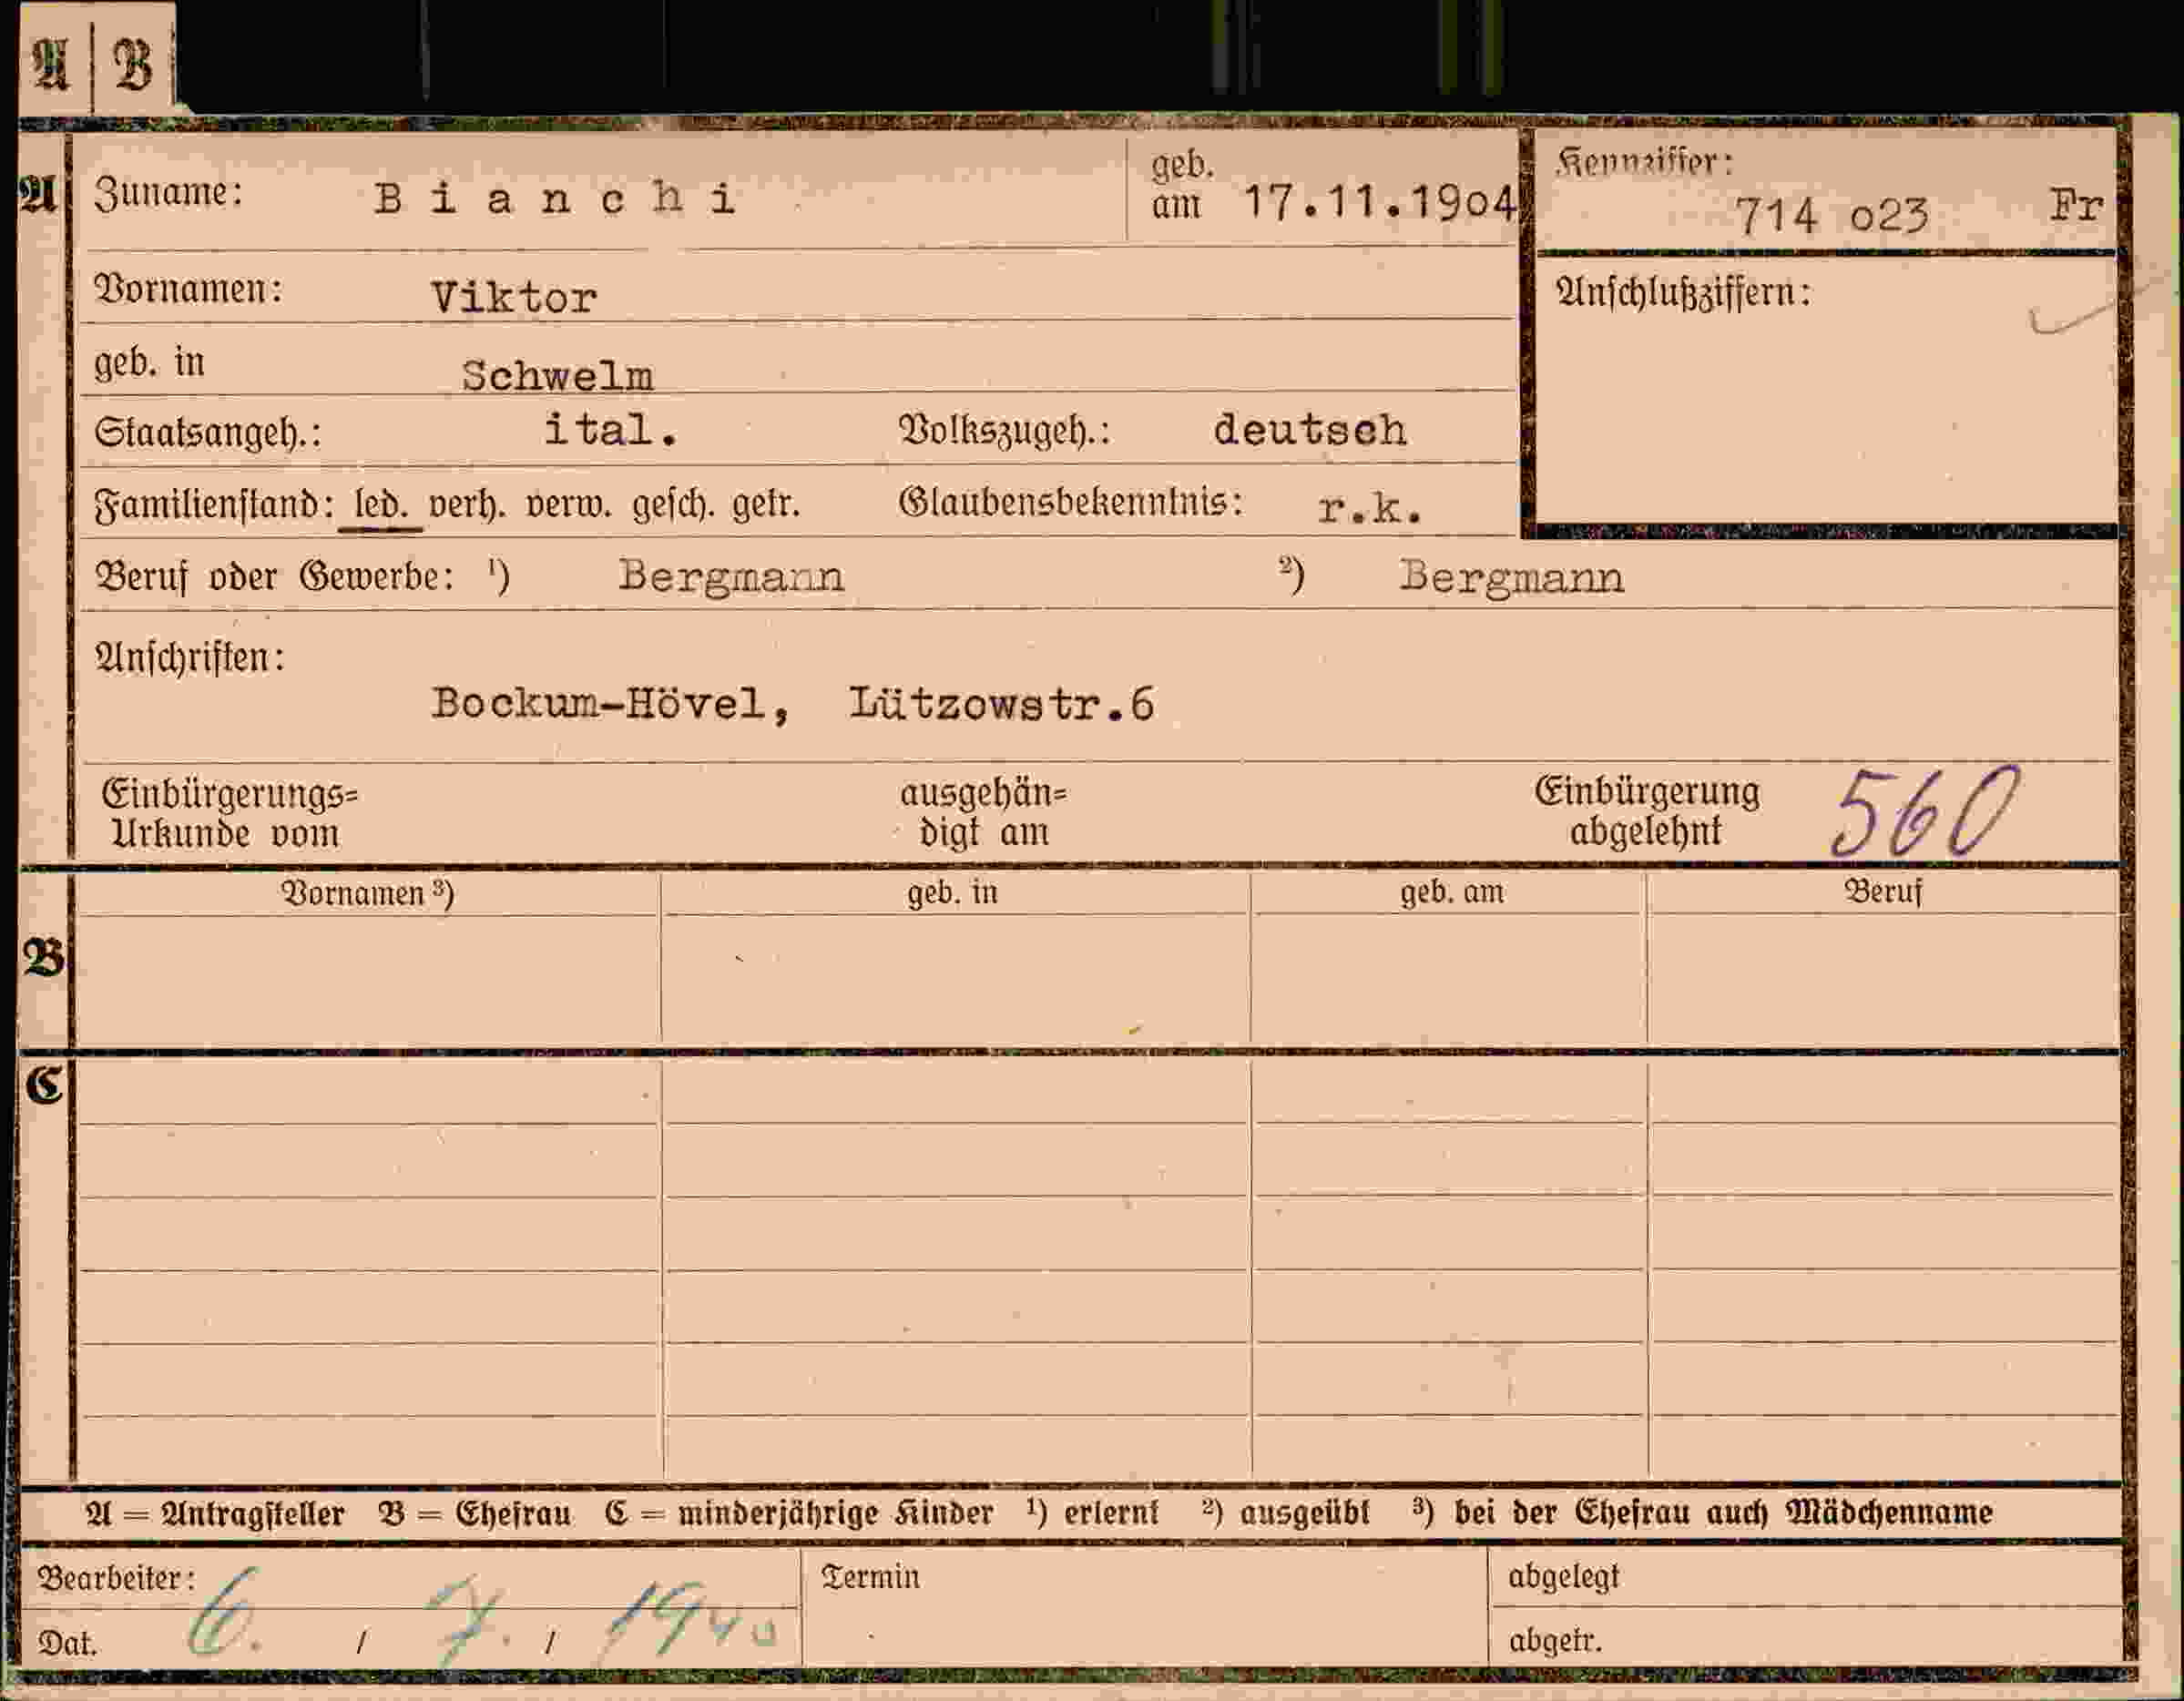 A | B
A Zuname: Bianchi geb. am 17.11.19o4 Kennziffer: 714 o23 Fr
Vornamen: Viktor Anschlußziffern:
geb. in Schwelm
Staatsangeh.: ital. Volkszugeh.: deutsch
Familienstand: led. verh. verw. gesch. getr. Glaubensbekenntnis: r.k.
Beruf oder Gewerbe: ¹) Bergmann ²) Bergmann
Anschriften:
Bockum-Hövel, Lützowstr.6
Einbürgerungs= ausgehän= Einbürgerung 560
Urkunde vom digt am abgelehnt
Vornamen ³) geb. in geb. am Beruf
B
C
A = Antragsteller B = Ehefrau C = minderjährige Kinder ¹) erlernt ²) ausgeübt ³) bei der Ehefrau auch Mädchenname
Bearbeiter: Termin abgelegt
Dat. 6. / 7. / 1940 abgetr.